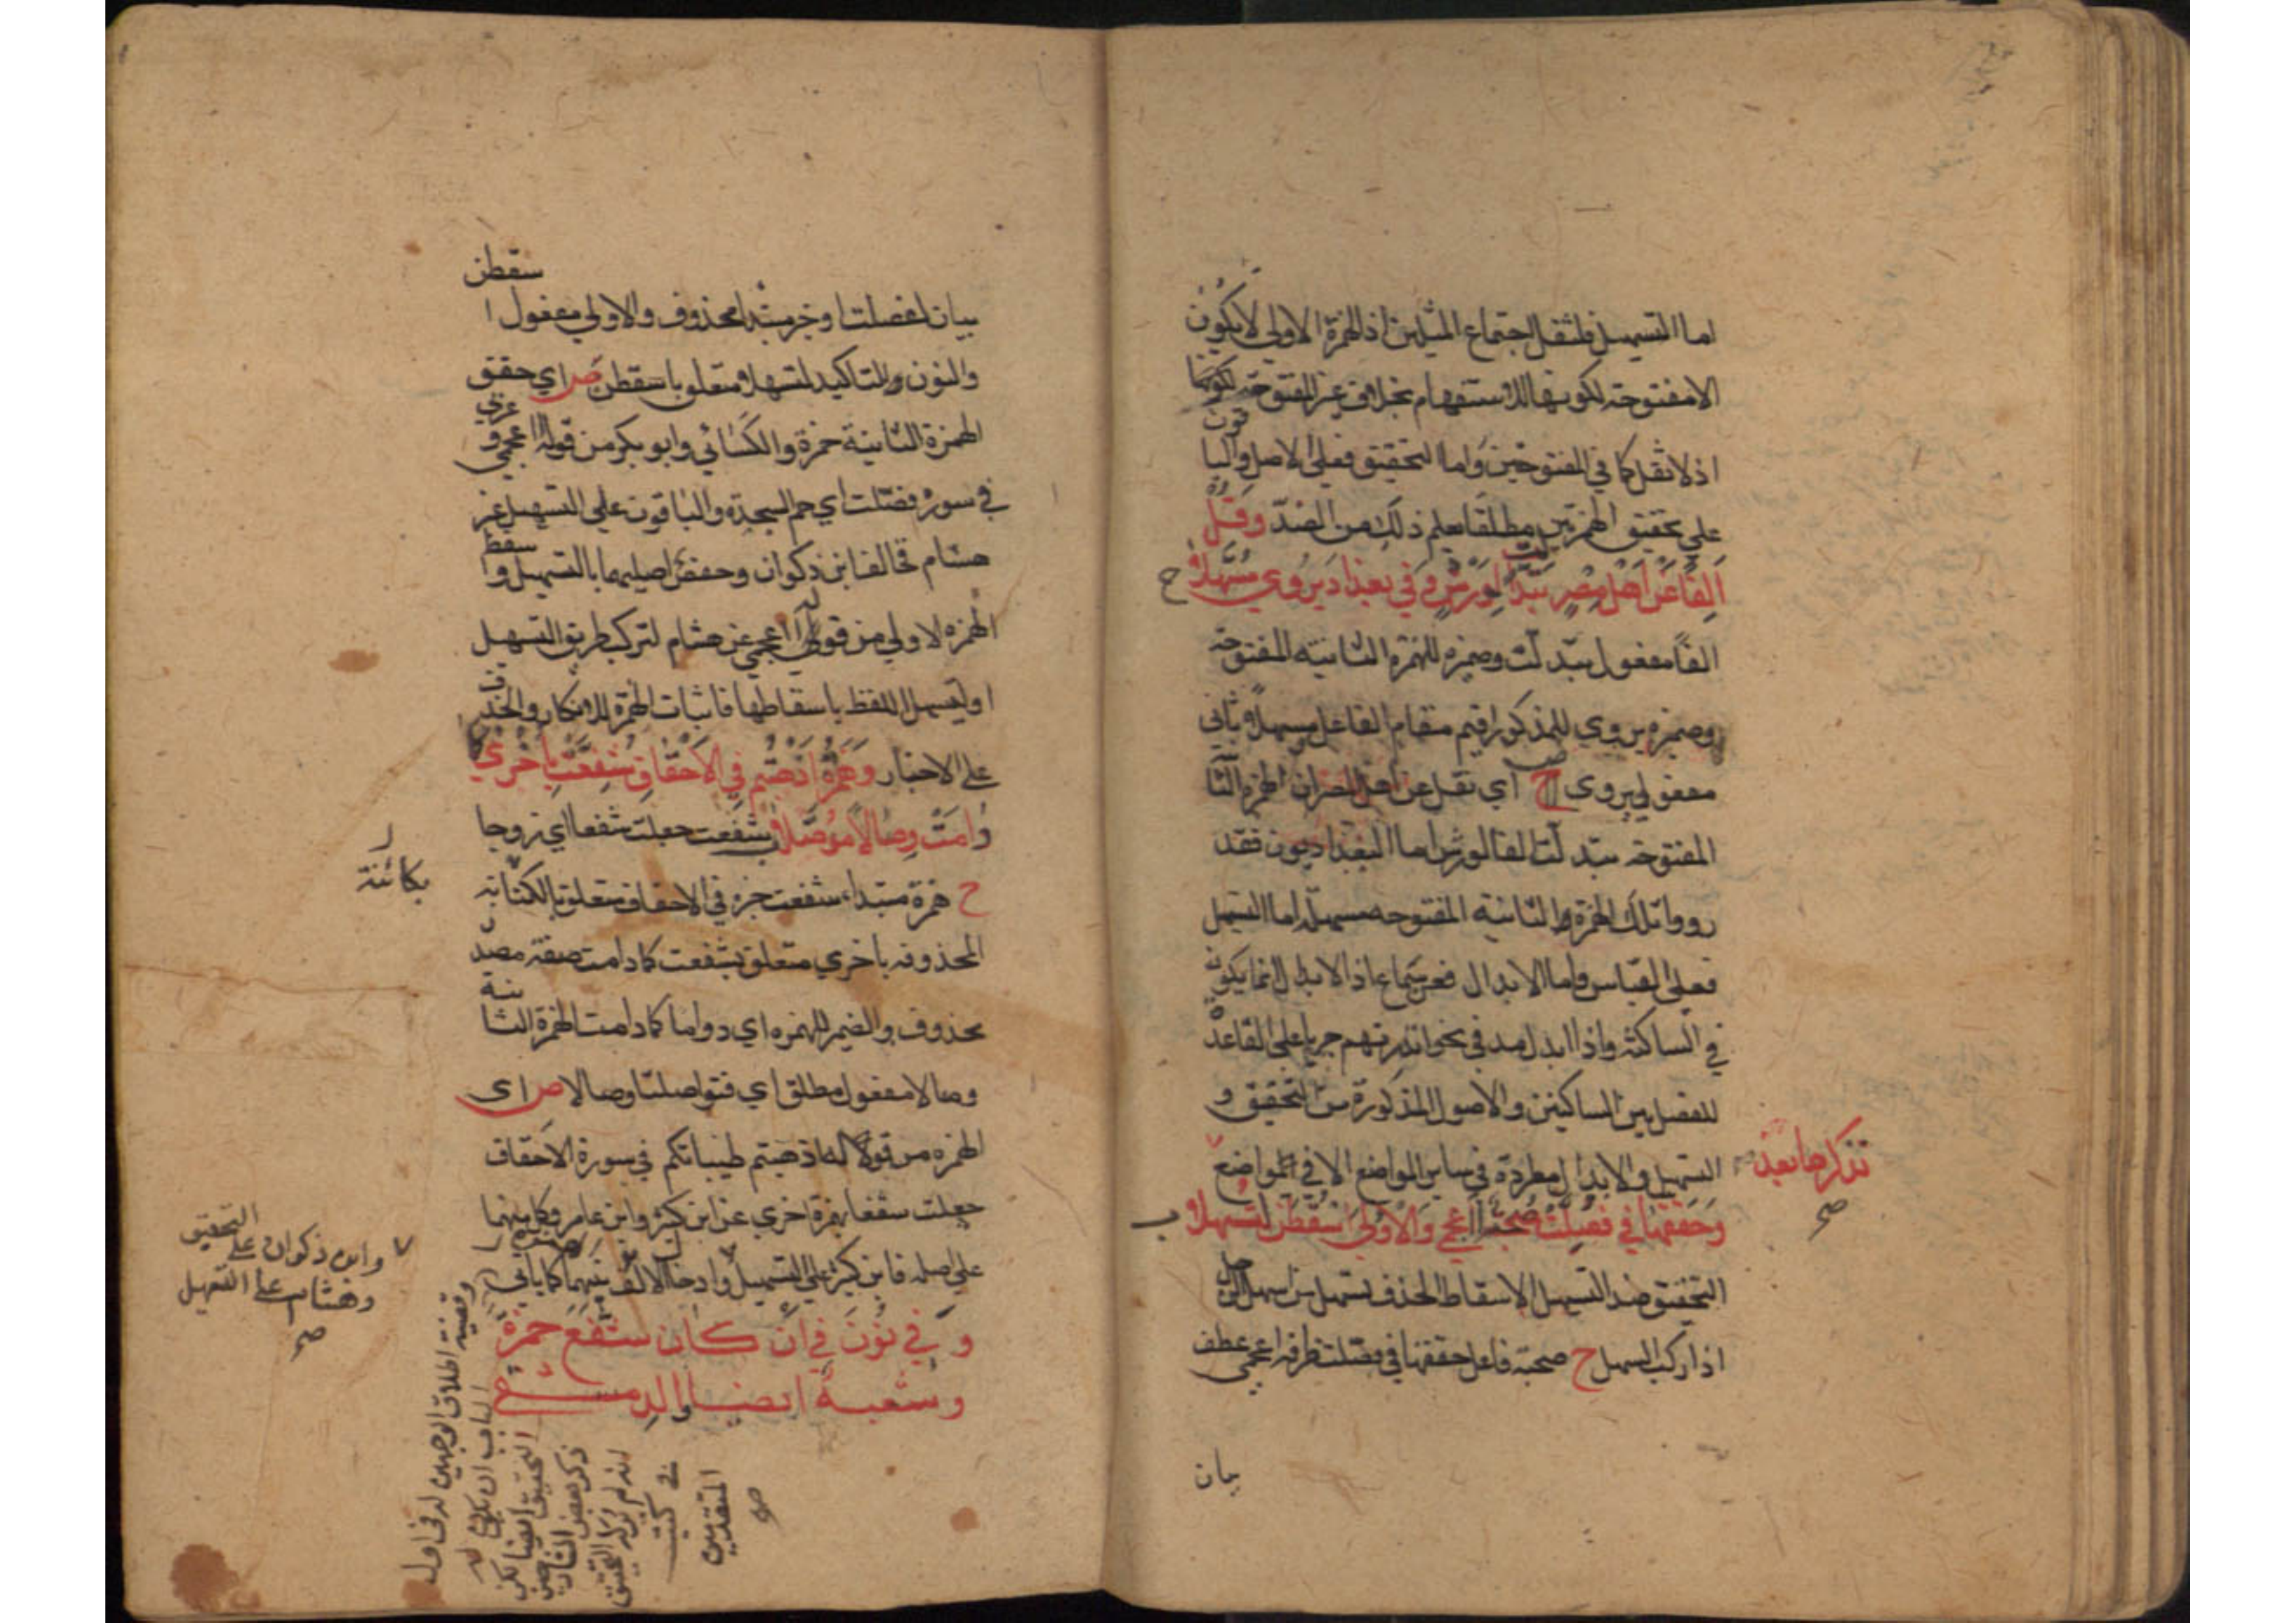 اما التسهيل فلثقل اجتماع المثلين اذ الهمزة الاولي لا يكون
الا مفتوحة لكونها للاستفهام بخلاف غير المفتوحة
اذ لا ثقل كما في المفتوحتين واما التحقيق فعلي الاصل والبا
قون
علي تحقيق الهمزتين مطلقا يعلم ذلك من الضد وَقُلْ
اَلِفًا عَنْ اَهْلِ مِصْرَ تَبَدَّلَتْ لِوَرْشٍ وَفي بغداد يُرْوي مُسَهَّلا ح
الفا مفعول تبدلت وضميره للهمزة الثانية المفتوحة
وضميره يروي للمذكور اقيم مقام الفاعل مسهلا ثاني
مفعولي يروي ص اي نقل عن اهل مصر ان الهمزة الثا
المفتوحة تبدلت الفا لورش اما البغداديون فقد
رووا تلك الهمزة الثانية المفتوحه مسهلة اما التسهيل
فعلي القياس واما الابدال فعن سماع اذ الابدال انما يكون
في الساكنة واذا ابدل مد في نحو اانذرتهم جريا علي القاعدة
للفصل بين الساكنين والاصول المذكورة من التحقيق و
التسهيل والابدال مطردة في ساير المواضع الا في المواضع
نذكرها بعد
صح
وَحَقَّقَهَا في فُصِّلَتْ صُحْبَةٌ أَاَعْجَمِي وَالاُولَي اَسْقِطَنَّ لِتَسْهُلا ب
التحقيق ضد التسهيل الاسقاط الحذف تسهل من اسهل الرجل
اذا ركب السهل ح صحبة فاعل حققها في فصلت ظرفه اعجمي عطف
بيان
بيان لفصلت او خبر مبتدا محذوف والاولي مفعول ا
سقطن
والنون للتاكيد لتسهلا متعلق باسقطن ص اي حقق
الهمزة الثانية حمزة والكسائي وابو بكر من قوله ااعجمي و
عربي
في سورة فصلت اي حم السجدة والباقون علي التسهيل غير
هشام فخالف ابن ذكوان وحفص اصليهما بالتسهيل وا
سقط
الهمزه لاولي من قوله ااعجمي عن هشام لتركب طريق التسهيل
او ليسهل اللفظ باسقاطها فاثبات الهمزة للانكار والحذف
علي الاخبار وَهَمْزَةُ اَذْهَبْتُمْ في الاَحْقَافِ شُفِّعَتْ بِاُخْرَي
كما دَامَتْ وِصَالاً مُوَصَّلا ب شفعت جعلت شفعا اي زوجا
ح همزة مبتداء شفعت خبره في الاحقاف متعلق بالكائنة
بكائنة
المحذوفه باخري متعلق بشفعت كما دامت صفة مصدر
محذوف والضمير للهمزه اي دواما كما دامت الهمزة الثا
نية
وصالا مفعول مطلق اي فتواصلتا وصالا ص اي
الهمزه من قوله اذهبتم طيباتكم في سورة الاحقاف
جعلت شفعا بهمزة اخري عن ابن كثير وابن عامر وكل منهما
علي اصله فابن كثير علي التسهيل وادخال الالف بينهما كما ياتي
وابن ذكوان علي التحقيق
وهشام علي التسهيل
صح
و في نُوْنَ في اَنْ كَانَ شَفَّعَ حَمْزَةٌ
وَشُعْبَةُ ايضا والدمشقي